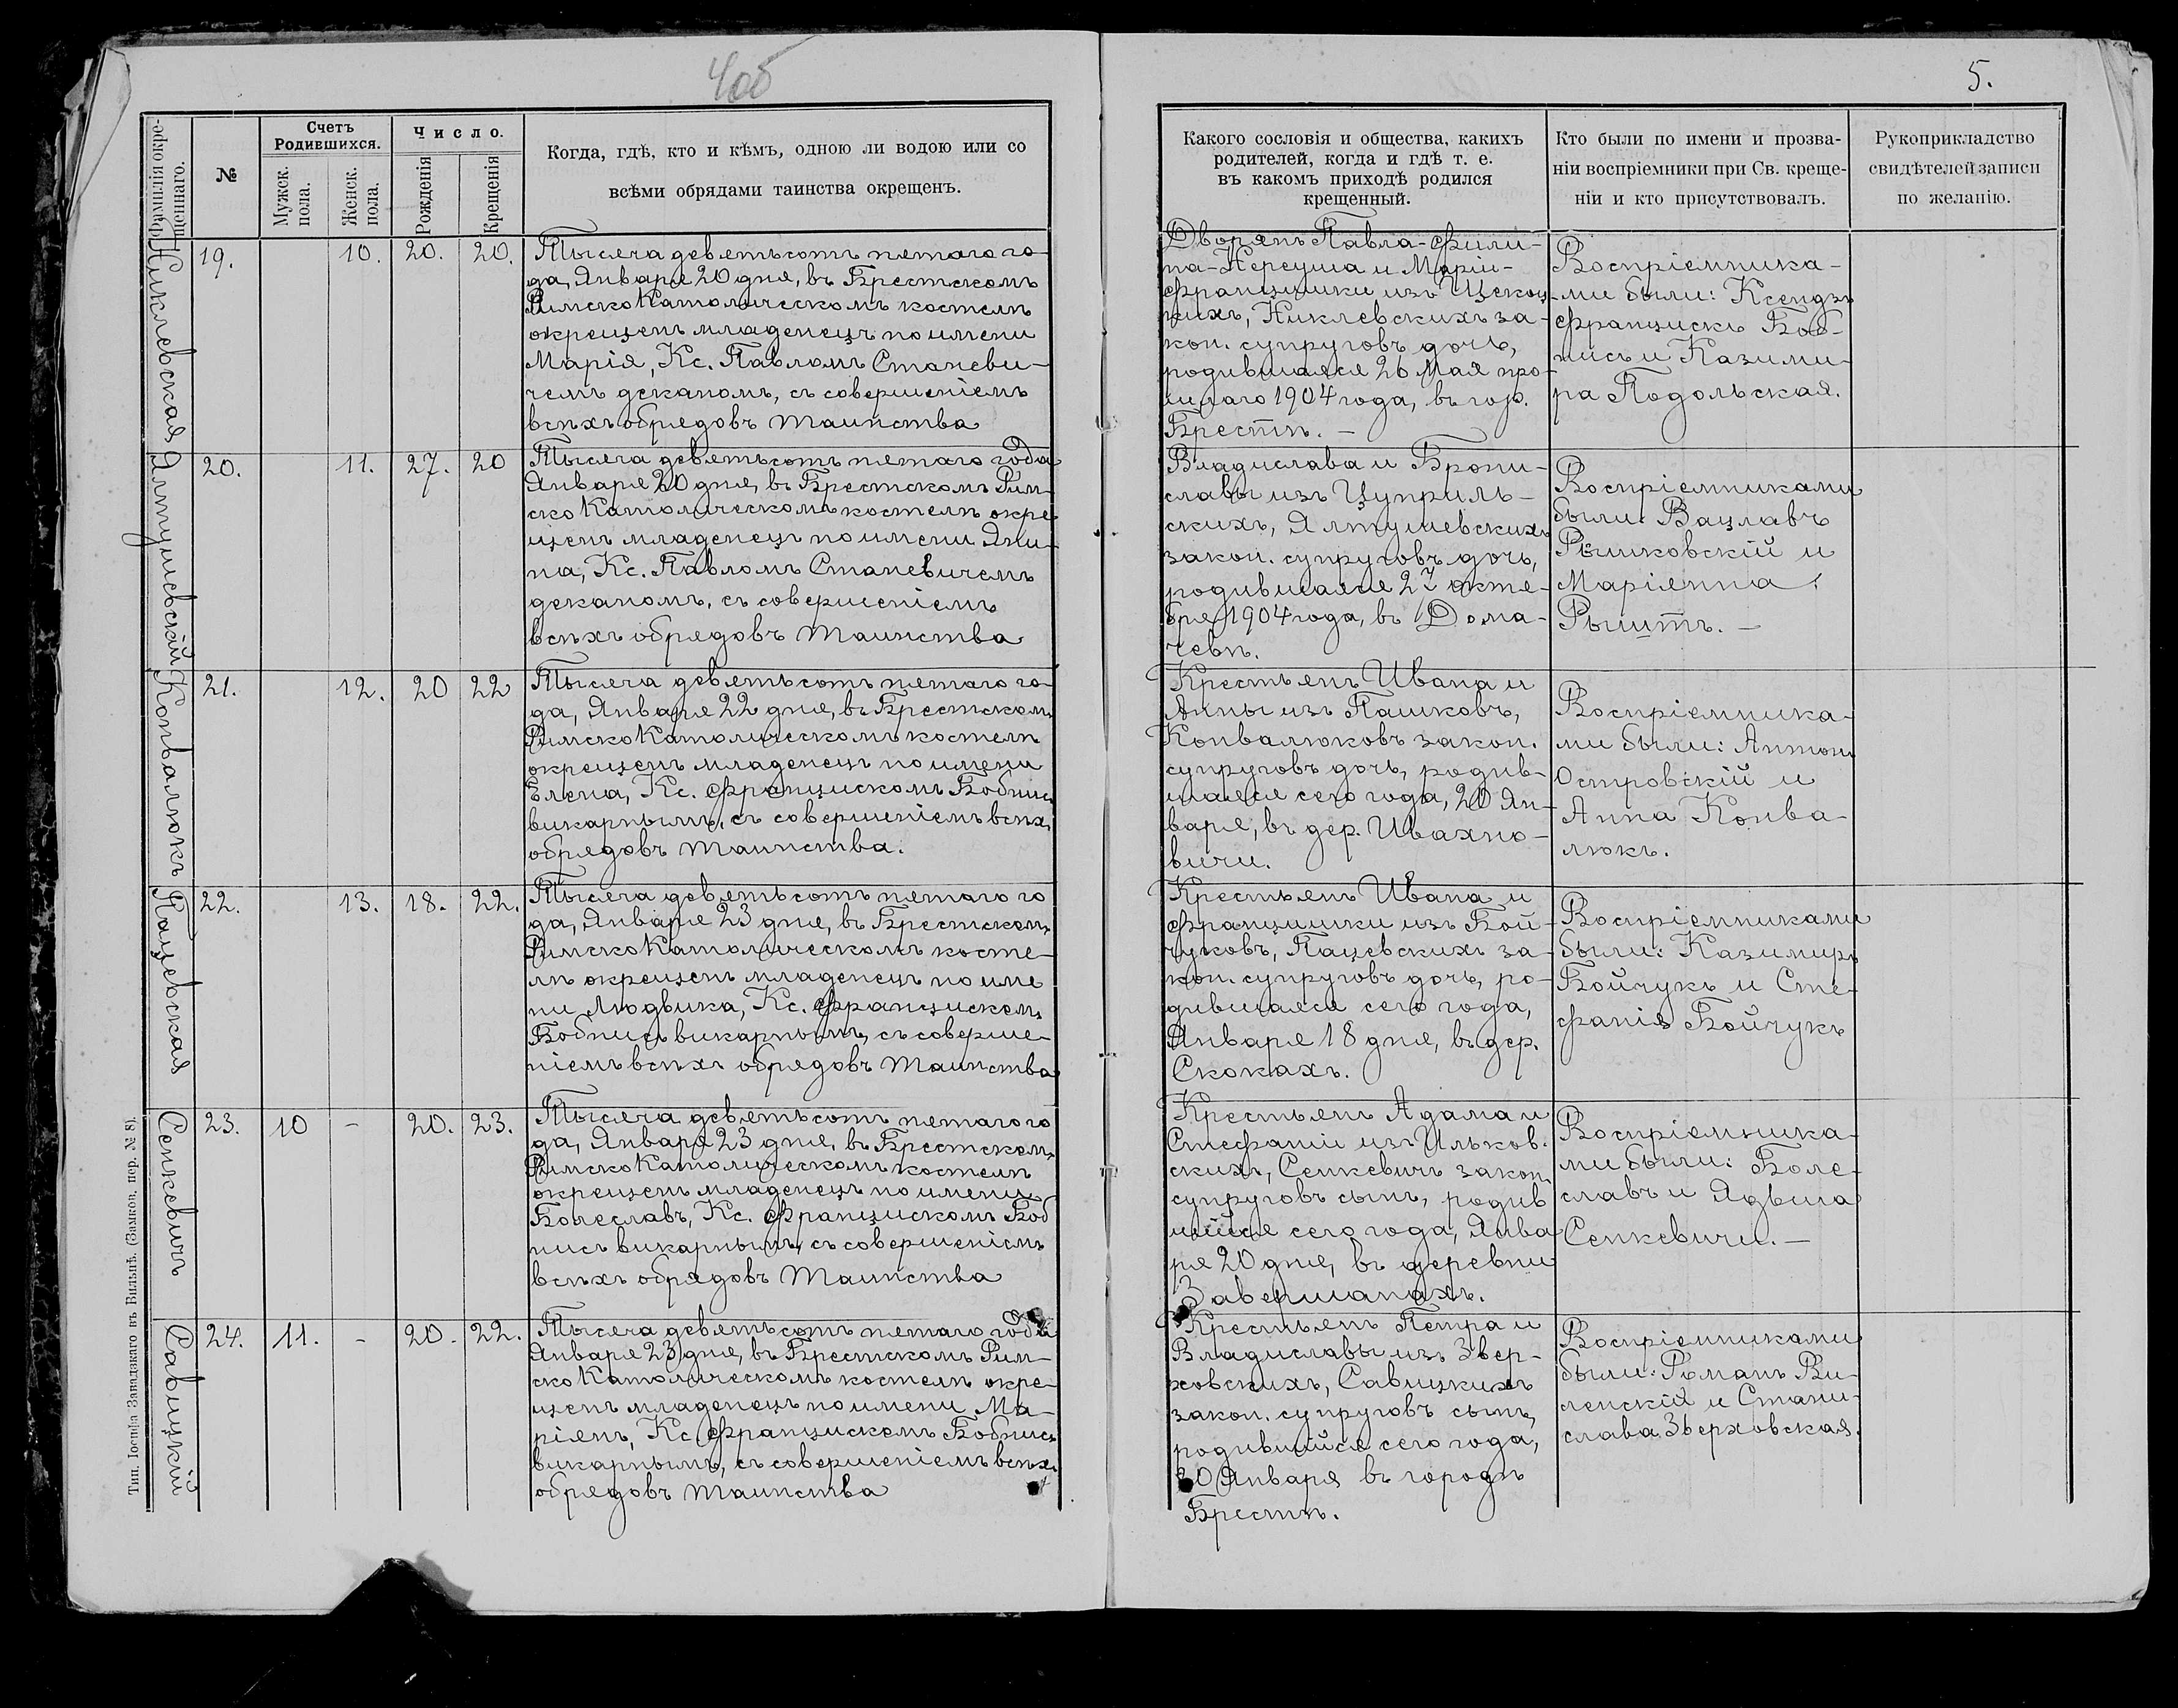 4об
5.
Фамилія окре-
щеннаго.
№
Счетъ
Родившихся.
Мужск.
пола.
Женск.
пола.
Число.
Рожденія
Крещенія
Когда, гдѣ, кто и кѣмъ, одною ли водою или со
всѣми обрядами таинства окрещенъ.
Какого сословія и общества, какихъ
родителей, когда и гдѣ т. е.
въ какомъ приходѣ родился
крещенный.
Кто были по имени и прозва-
ніи воспріемники при Св. креще-
ніи и кто присутствовалъ.
Рукоприкладство
свидѣтелей записи
по желанію.
Никлевская
19.
10.
20.
20.
Тысяча девятьсотъ пятаго го-
да, Января 20 дня, въ Брестскомъ
Римско Католическомъ костелѣ
окрещенъ младенецъ по имени
Марія, Кс. Павломъ Станеви-
чемъ деканомъ, съ совершеніемъ
всѣхъ обрядовъ таинства
Дворянъ Павла-Фили-
па-Нереуша и Маріи-
Францишки изъ
Никлевскихъ за-
кон. супруговъ дочь,
родившаяся 26 Мая про-
шлаго 1904 года, въ гор.
Брестѣ. –
Воспріемника-
ми были: Ксендзъ
Францискъ Боб-
нисъ и Казими-
ра Подольская.
Ялтушевскій
20.
11.
27.
20
Тысяча девятьсотъ пятаго года
Января 20 дня, въ Брестскомъ Рим-
ско Католическомъ костелѣ окре
щенъ младенецъ по имени Яни-
на, Кс. Павломъ Станевичемъ
деканомъ, съ совершеніемъ
всѣхъ обрядовъ таинства
Владислава и Брони-
славы изъ Цуприль-
скихъ, Ялтушевскихъ
закон. супруговъ дочь,
родившаяся 27 октя-
бря 1904 года, въ Дома-
чевѣ.
Воспріемниками
были: Вацлавъ
Рышковскій и
Маріянна
Рышть. –
Конвалюкъ
21.
12.
20
22
Тысяча девятьсотъ пятаго го-
да, Января 22 дня, въ Брестскомъ
Римско Католическомъ костелѣ
окрещенъ младенецъ по имени
Елена, Кс. Францискомъ Бобнисъ
викарнымъ, съ совершеніемъ всѣхъ
обрядовъ таинства.
Крестьянъ Ивана и
Анны изъ Пашковъ,
Конвалюковъ закон.
супруговъ дочь, родив-
шаяся сего года, 20 Ян-
варя, въ дер. Ивахно-
вичи.
Воспріемника-
ми были: Антонъ
Островскій и
Анна Конва-
люкъ.
Пацевская
22.
13.
18.
22.
Тысяча девятьсотъ пятаго го
да, Января 23 дня, въ Брестскомъ
Римско Католическомъ косте-
лѣ окрещенъ младенецъ по име
ни Людвика, Кс. Францискомъ
Бобнисъ викарнымъ, съ соверше-
ніемъ всѣхъ обрядовъ таинства
Крестьянъ Ивана и
Францишки изъ Бой-
чуковъ, Пацевскихъ за-
кон. супруговъ дочь, ро-
дившаяся сего года,
Января 18 дня, въ дер.
Скокахъ.
Воспріемниками
были: Казимиръ
Бойчукъ и Сте-
фанія Бойчукъ
Сенкевичъ
23.
10
–
20.
23.
Тысяча девятьсотъ пятаго го
да, Января 23 дня, въ Брестскомъ
Римско Католическомъ костелѣ
окрещенъ младенецъ по имени
Болеславъ, Кс. Францискомъ Боб
нисъ викарнымъ, съ совершеніемъ
всѣхъ обрядовъ таинства
Крестьянъ Адама и
Стефаніи изъ Ильков-
скихъ, Сенкевичъ закон.
супруговъ сынъ, родив
шійся сего года, Янва
ря 20 дня, въ деревни
Завершанахъ.
Воспріемника-
ми были: Боле-
славъ и Ядвига
Сенкевичи. –
Савицкій
24.
11.
-
20.
22.
Тысяча девятьсотъ пятаго года
Января 23 дня, въ Брестскомъ Рим-
ско Католическомъ костелѣ окре-
щенъ младенецъ по имени Ма-
ріянъ, Кс. Францискомъ Бобнисъ
викарнымъ, съ совершеніемъ всѣхъ
обрядовъ таинства
Крестьянъ Петра и
Владиславы изъ Звер-
ховскихъ, Савицкихъ
закон. супруговъ сынъ,
родившійся сего года,
20 Января въ городѣ
Брестѣ.
Воспріемниками
были: Романъ Ви-
ленскій и Стани-
слава Зверховская.
Тип. Іосифа Завадзкаго въ Вильнѣ. (Замков. пер. № 8).